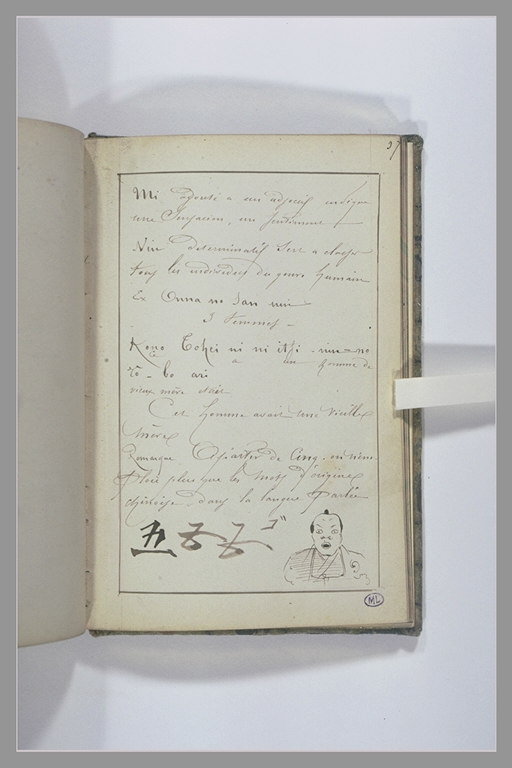 37
Mi ajouté a un adjectif indique
une Sensation, un Sentiment
Nin determinatif sert a classer
tous les individus du genre humain
Ex Onna no San nin
3 femmes
Kono ni ni itsi - nin = no
a un homme de
rô - bo ari
vieux mère était
Cet homme avait une vieille
mère
Remarque A partir de Cinq. on n'em-
ploie plus que les mots d'origine
chinoise dans la langue parlée
五
ML